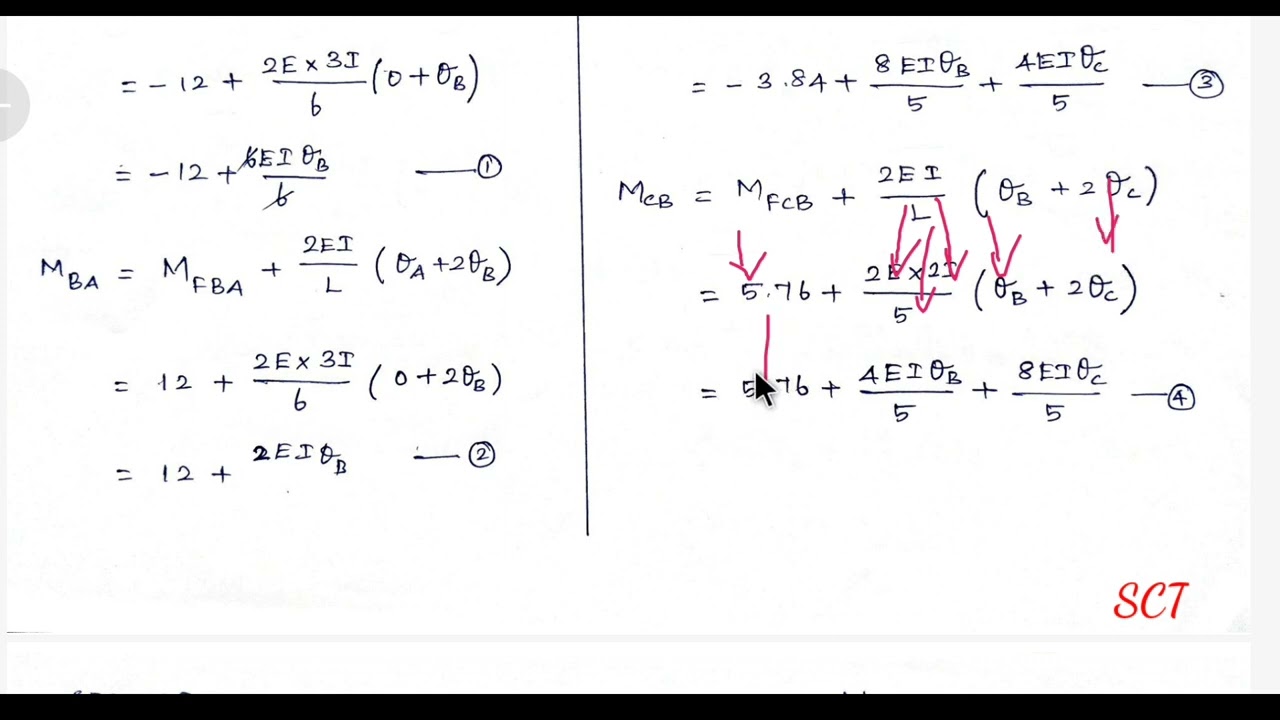 = -12 + 2E × 3I / 6 (0 + θB)
= -12 + 6EIθB / 6 —— ①
MBA = MFBA + 2EI / L (θA + 2θB)
= 12 + 2E × 3I / 6 (0 + 2θB)
= 12 + 2EIθB —— ②
= - 3.84 + 8EIθB / 5 + 4EIθC / 5 —— ③
MCB = MFCB + 2EI / L (θB + 2θC)
= 5.76 + 2E × 2I / 5 (θB + 2θC)
= 5.76 + 4EIθB / 5 + 8EIθC / 5 —— ④
SCT